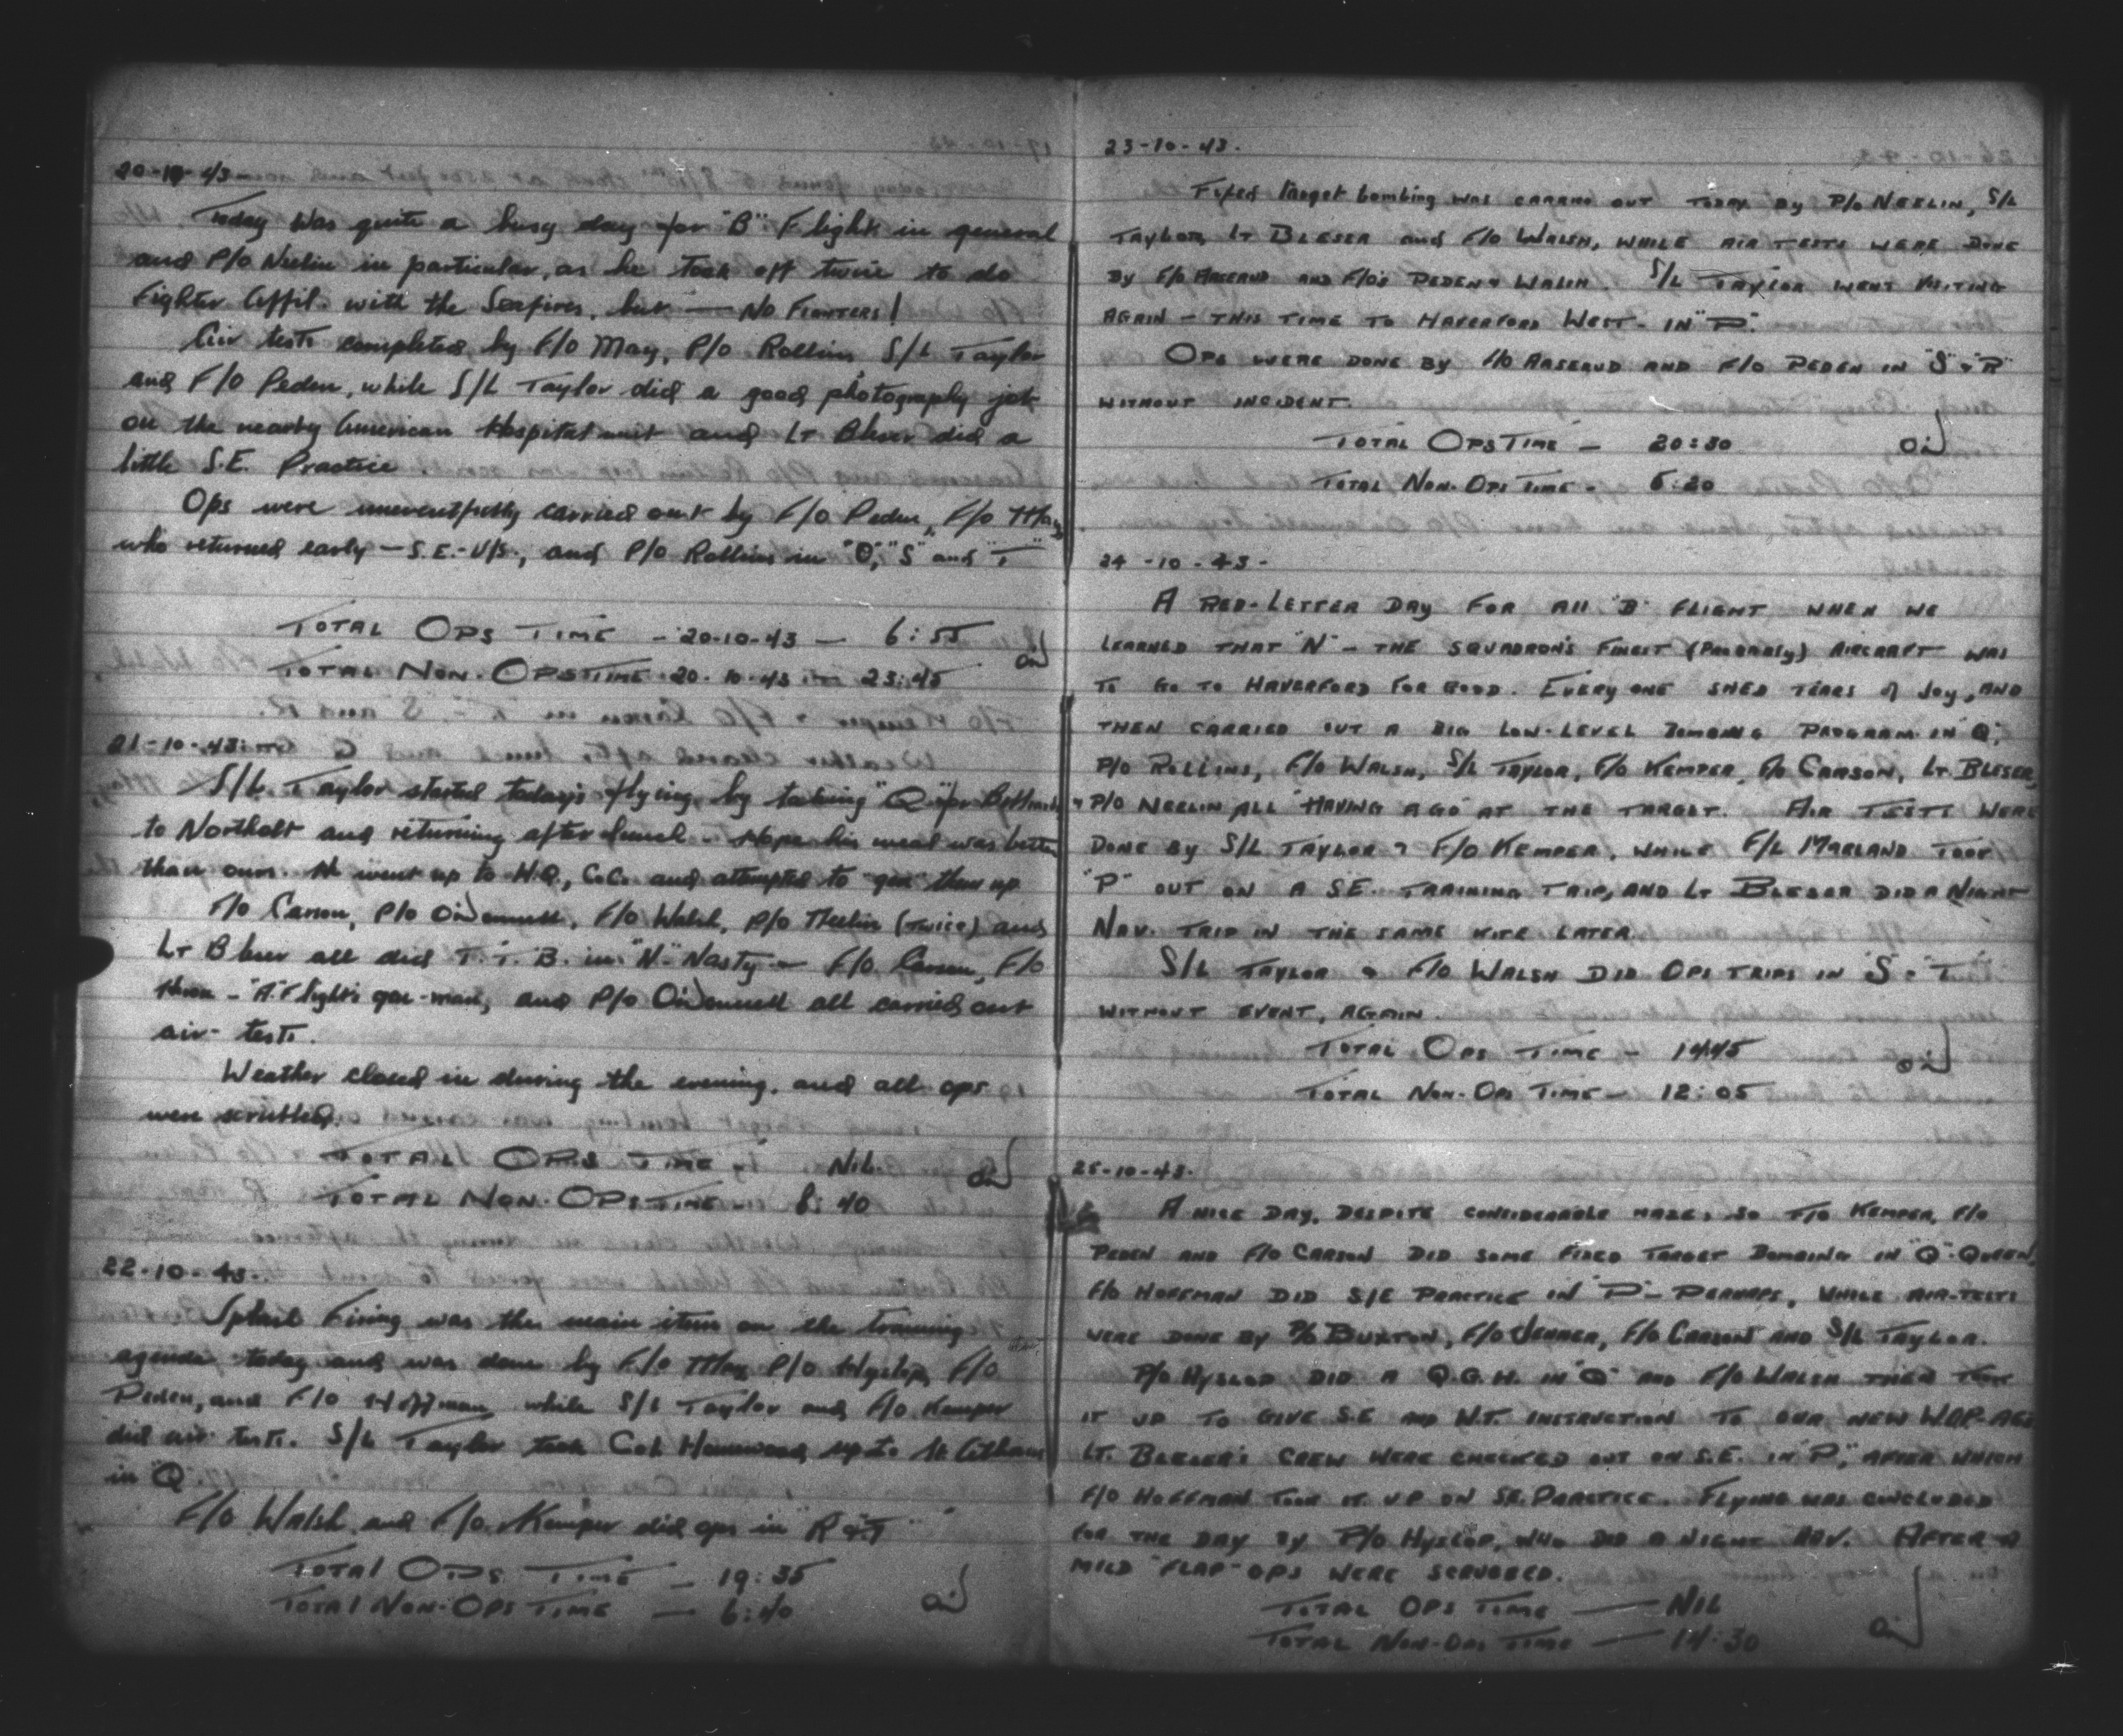 20-10-43
Today was quite a busy day for "B" Flight in general
and P/O Neelin in particular, as he took off twice to do
Fighter Affil. with the Seafires, but — No Fighters!
Air tests completed by F/O May, P/O Rollins S/L Taylor
and F/O Peden, while S/L Taylor did a good photography job
on the nearby American Hospital unit and Lt Bleser did a
little S.E. Practice.
Ops were uneventfully carried out by F/O Peden, F/O May
who returned early - S.E. - U/S., and P/O Rollins in "O", "S" and "T"
Total Ops Time - 20-10-43 — 6:55
Total Non-Ops Time 20-10-43 — 23:45
21-10-43
S/L Taylor started today's flying by taking "Q" for
to Northolt and returning after lunch - Hope his meal was better
than ours. He went up to H.Q., C.C. and attempted to "gen" them up
F/O Carson, P/O O'Donnell, F/O Walsh, P/O Neelin (twice) and
Lt Bleser all did T.T.B. in "N" - Nasty — F/O Carson, F/O
- "A" Flight's gen-man, and P/O O'Donnell all carried out
air-tests.
Weather closed in during the evening, and all ops
were scrubbed.
Total Ops Time - Nil.
Total Non-Ops Time - 8:40
22-10-43.
Splash Firing was the main item on the training
agenda today and was done by F/O May P/O Hyslop, F/O
Peden, and F/O Hoffman while S/L Taylor and F/O Kemper
did air tests. S/L Taylor took Col. up to St Athans
in "Q".
F/O Walsh and F/O Kemper did ops in "R & T"
Total Ops Time — 19:35
Total Non-Ops Time — 6:40
23-10-43.
Fixed Target bombing was carried out today by P/O Neelin, S/L
Taylor, Lt Bleser and F/O Walsh, while air tests were done
by F/O Aaserud and F/O's Peden & Walsh. S/L Taylor went visiting
again - this time to Haverford West - in "P".
Ops were done by F/O Aaserud and F/O Peden in "S" & "R"
without incident.
Total Ops Time — 20:30
Total Non-Ops Time - 5:20
24-10-43-
A red-letter day for all "B" Flight when we
learned that "N" - the squadron's finest (Probably) aircraft was
to go to Haverford for good. Everyone shed tears of joy, and
then carried out a big low-level bombing program in "Q",
P/O Rollins, F/O Walsh, S/L Taylor, F/O Kemper, F/O Carson, Lt Bleser,
& P/O Neelin all "having a go" at the target. Air tests were
done by S/L Taylor & F/O Kemper, while F/L Marland took
"P" out on a S.E. training trip, and Lt Bleser did a Night
Nav. trip in the same kite later.
S/L Taylor & F/O Walsh did Ops trips in "S" & "T"
without event, again.
Total Ops Time - 14:45
Total Non-Op Time - 12:05
25-10-43.
A nice day, despite considerable haze, so F/O Kemper, F/O
Peden and F/O Carson did some Fixed Target Bombing in "Q"-Queen,
F/O Hoffman did S/E Practice in "P"- Perhaps, while air-tests
were done by P/O Buxton, F/O Jenner, F/O Carson and S/L Taylor.
P/O Hyslop did a Q.G.H. in "Q" and F/O Walsh then took
it up to give S.E and W.T. instruction to our new W.O.P.-AGs
Lt. Bleser's crew were checked out on S.E. in "P", after which
F/O Hoffman took it up on S.E. Practice. Flying was concluded
for the day by P/O Hyslop, who did a night Nav. After a
mild "flap" ops were scrubbed.
Total Ops Time — Nil
Total Non-Ops Time — 14:30